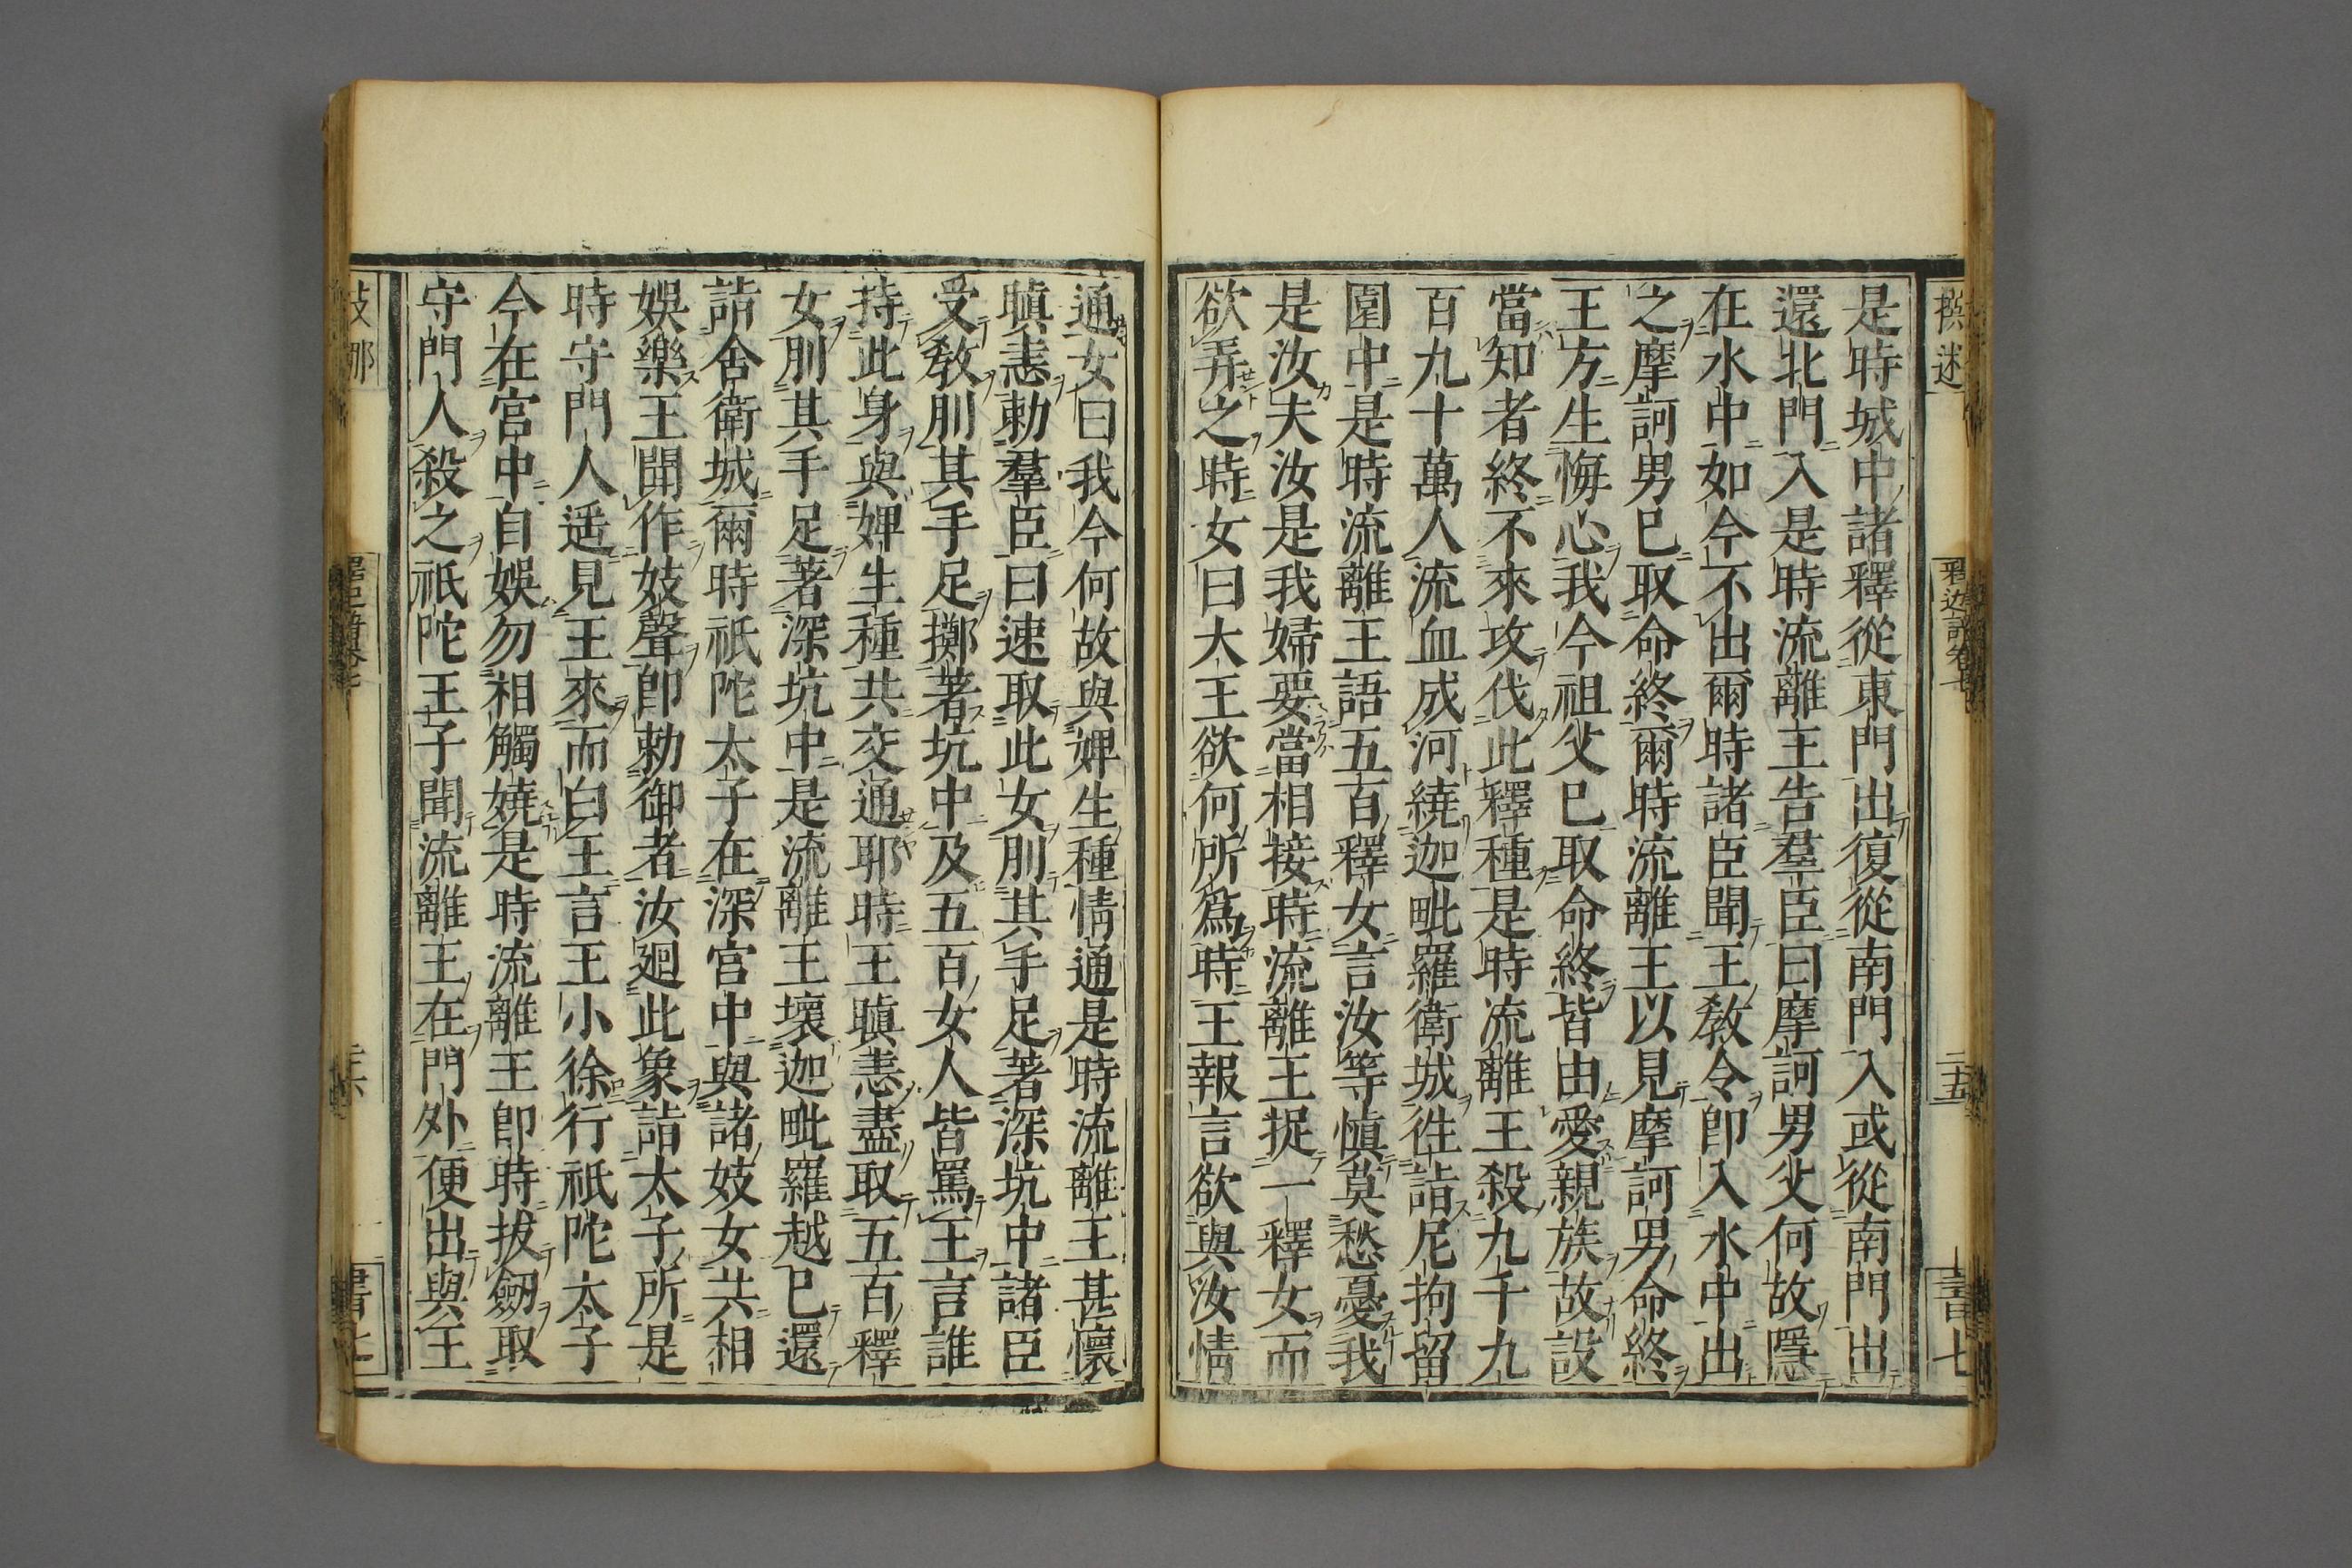 是時城中諸釋從東門出復從南門入或從南門出
還北門入是時流離王告羣臣曰摩訶男父何故隱
在水中如今不出爾時諸臣聞王敎令卽入水中出
之摩訶男已取命終爾時流離王以見摩訶男命終
王方生悔心我今祖父已取命終皆由愛親族故設
當知者終不來攻伐此釋種是時流離王殺九千九
百九十萬人流血成河繞迦毗羅衛城往詣尼拘留
園中是時流離王語五百釋女言汝等愼莫愁憂我
是汝夫汝是我婦要當相接時流離王捉一釋女而
欲弄之時女曰大王欲何所爲時王報言欲與汝情
通女曰我今何故與婢生種情通是時流離王甚懷
瞋恚勅羣臣曰速取此女刖其手足著深坑中諸臣
受敎刖其手足擲著坑中及五百女人皆罵王言誰
持此身與婢生種共交通耶時王瞋恚盡取五百釋
女刖其手足著深坑中是流離王壞迦毗羅越已還
詣舍衛城爾時祇陀太子在深宮中與諸妓女共相
娛樂王聞作妓聲卽勅御者汝廻此象詣太子所是
時守門人遥見王來而白王言王小徐行祇陀太子
今在宮中自娛勿相觸嬈是時流離王卽時拔劒取
守門人殺之祇陀王子聞流離王在門外便出與王
釋迦譜卷七
二十五
書七